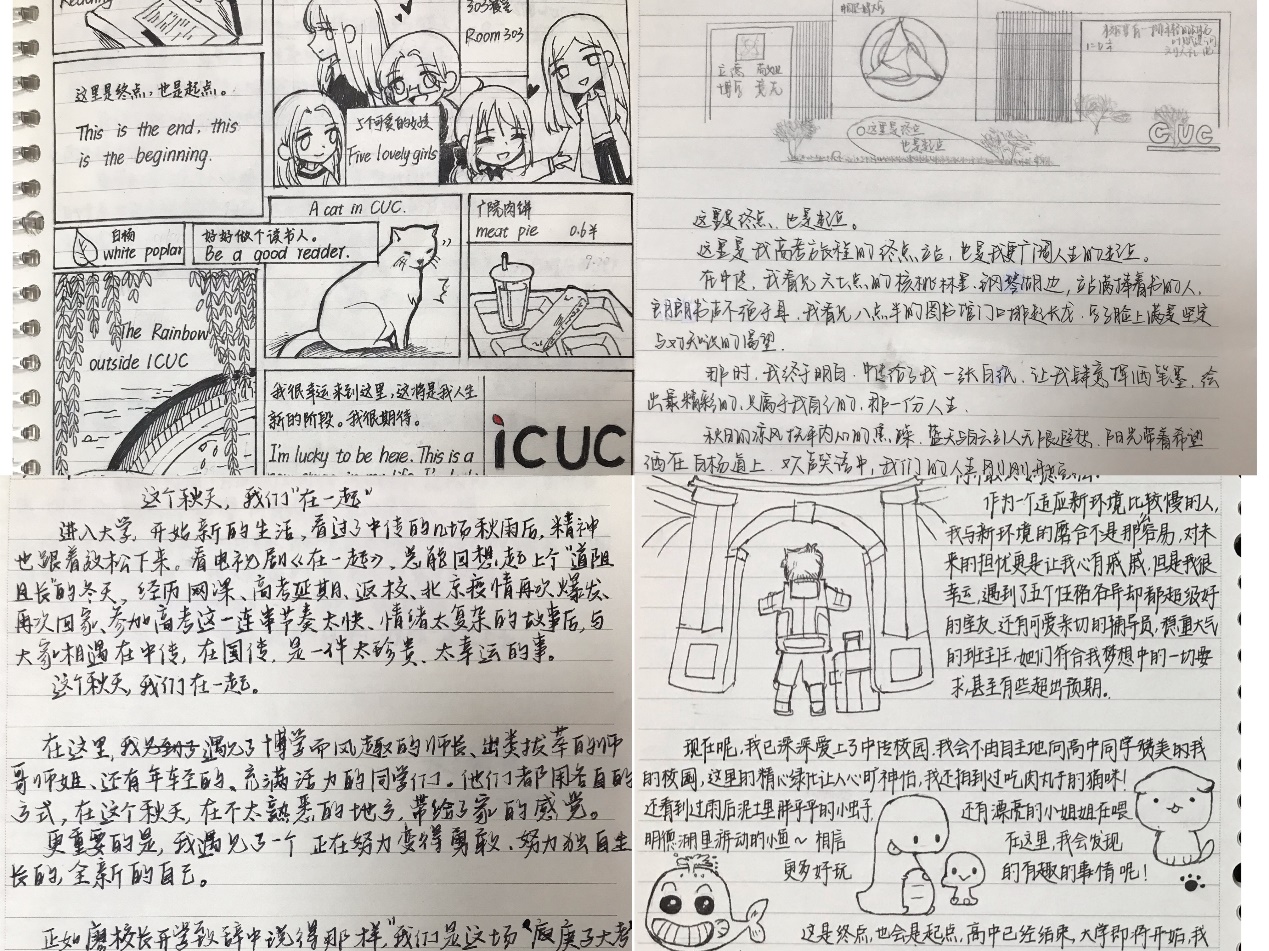 Reading
303寝室
Room 303
这里是终点,也是起点。
This is the end, this
is the beginning.
5个可爱的女孩
Five lovely girls
白杨
white poplar
好好做个读书人。
Be a good reader.
A cat in CUC.
广院肉饼
meat pie 0.6¥
The Rainbow
outside ICUC
我很幸运来到这里,这将是我人生
新的阶段。我很期待。
I'm lucky to be here. This is a
iCUC
立德 敬业
博学 竞先
这里是终点
也是起点
CUC
这里是终点、也是起点。
这里是我高考旅程的终点站,也是我更广阔人生的起点。
在中传,我看见六七点的核桃林里、钢琴湖边,站满捧着书的人,
朗朗书声不绝于耳,我看见八点半的图书馆门口排起长龙,
与对知识的渴望。
那时,我终于明白,中传给了我一张白纸,让我肆意挥洒笔墨,绘
出最精彩的,只属于我自己的,那一份人生.
秋日的凉风抚平内心的焦躁,蓝天与白云引人无限遐想,阳光带着希望
洒在白杨道上,欢声笑语中,我们的
这个秋天,我们“在一起”
进入大学,开始新的生活,看过了中传的几场秋雨后,精神
也跟着放松下来。看电视剧《在一起》,总能回想起上个“道阻
且长”的冬天,经历网课、高考延期、返校、北京疫情再次爆发、
再次回家、参加高考这一连串节奏太快、情绪太复杂的故事后,与
大家相遇在中传,在国传,是一件太珍贵、太幸运的事。
这个秋天,我们在一起。
在这里,我遇见了博学而风趣的师长、出类拔萃的师
哥师姐、还有年轻的、充满活力的同学们。他们都用各自的
方式,在这个秋天,在不太熟悉的地方,带给了家的感觉。
更重要的是,我遇见了一个正在努力变得勇敢、努力独自生
长的,全新的自己。
正如廖校长开学致辞中说得那样“我们是这场“疫度大考
作为一个适应新环境比较慢的人,
我与新环境的磨合不是那容易,对未
来的担忧更是让我心有戚戚,但是我很
幸运,遇到了五个性格各异却都超级好
的室友,还有可爱亲切的辅导员,稳重大气
的班主任,她们符合我梦想中的一切要
求,甚至有些超出预期.
现在呢,我已深深爱上了中传校园,我会不由自主地向高中同学赞美的我
的校园,这里的精心绿化让人心旷神怡,我还拍到过吃肉丸子的猫咪!
还看到过雨后泥土里胖乎乎的小虫子, 还有漂亮的小姐姐在喂
明德湖里游动的小鱼~ 相信 在这里,我会发现
更多好玩 的有趣的事情呢!
这是终点,也会是起点,高中已经结束,大学即将开始,我